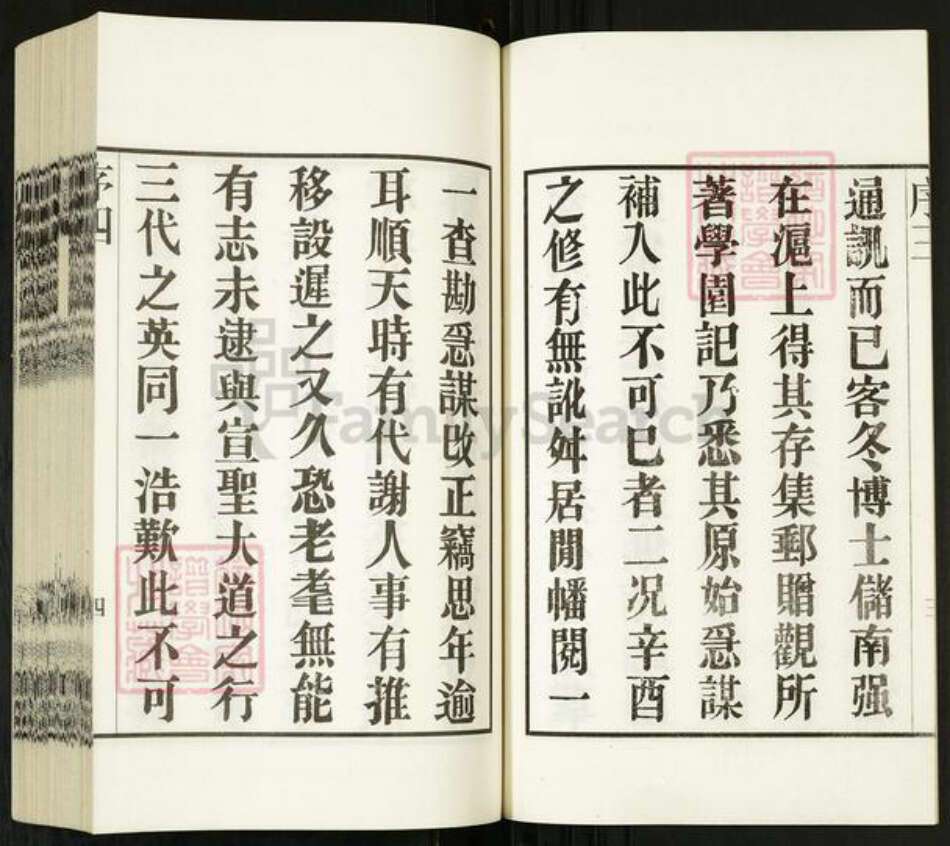 序三
通訊而已客冬博士儲南强
在滬上得其存集郵贈觀所
著學園記乃悉其原始亟謀
補入此不可已者二况辛酉
之修有無訛舛居閒幡閱一
一查勘亟謀改正竊思年逾
耳順天時有代謝人事有推
移設遲之又久恐老耄無能
有志未逮與宣聖大道之行
三代之英同一浩歎此不可
序四
四
FamilySearch